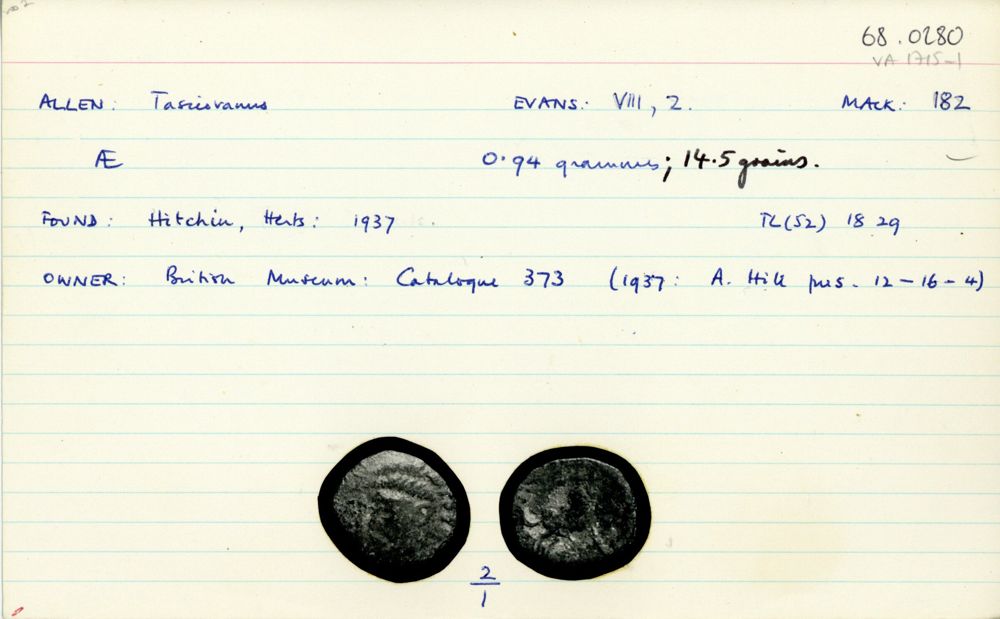 68.0280
VA 1715-1
ALLEN: Tasciovanus EVANS: VIII, 2. MACK: 182
Æ 0.94 grammes; 14.5 grains.
FOUND: Hitchin, Herts: 1937 TL(52) 18 29
OWNER: British Museum: Catalogue 373 (1937: A. Hill pres. 12-16-4)
2
1